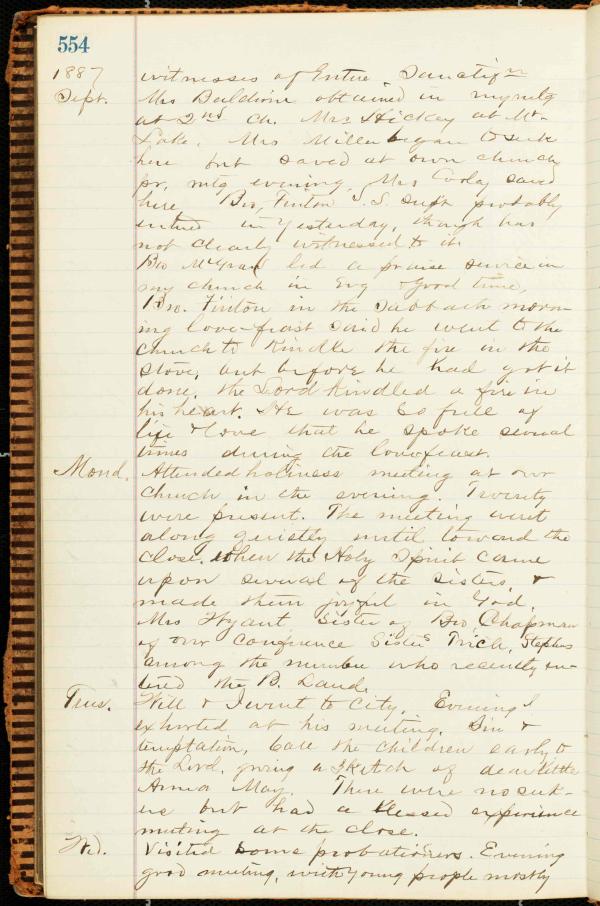 554
1887 witnesses of Entire Sanctifⁿ
Sept. Mrs Baldwin obtained in my mtg
at 2nd Ch. Mrs Hickey at Mt.
Lake. Mrs Miller began to seek
here but saved at own church
pr. mtg evening. Mrs Cooley saved
here Bro, Finton S.S. Supt probably
entered in yesterday, though has
not clearly witnessed to it.
Bro led a praise service in
my church in Evg & Good time,
Bro. Finton in the Sabbath morn-
ing love-feast said he went to the
church to kindle the fire in the
stove, but before he had got it
done, the Lord kindled a fire in
his heart. He was so full of
life & love that he spoke several
times during the lovefeast.
Mond. Attended holiness meeting at our
church in the evening. Twenty
were present. The meeting went
along quietly until toward the
close, when the Holy Spirit came
upon several of the sisters &
made them joyful in God.
Mrs Wyant Sister of Bro, Chapman
of our Conference Sisters Trich, Stephens
among the number who recently en-
tered the B. Land.
Tues. Will & I went to City. Evening I
exhorted at his meeting. Sin &
temptation, call the children early to
the Lord, giving a sketch of dear little
Anna May. There were no seek-
ers but had a blessed experience
meeting at the close.
Wed. Visited some probationers. Evening
good meeting, with young people mostly